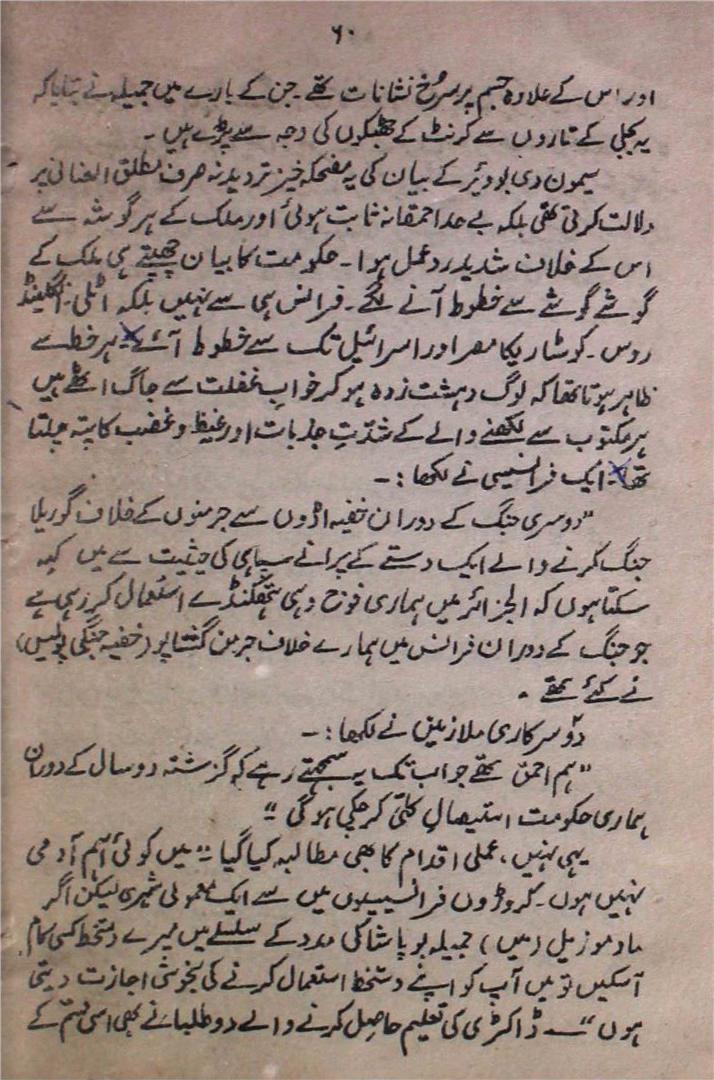 ۶۰
اور اس کے علاوہ جسم پر سرخ نشانات تھے۔ جن کے بارے میں جمیلہ نے بتایا کہ
یہ بجلی کے تاروں سے کرنٹ کے جھٹکوں کی وجہ سے پڑے ہیں۔
سیمون دی بودئیر کے بیان کی یہ مضحکہ خیز تردید نہ صرف مطلق العنانی پر
دلالت کرتی تھی بلکہ بے حد احمقانہ ثابت ہوئی اور ملک کے ہر گوشہ سے
اس کے خلاف شدید ردعمل ہوا۔ حکومت کا بیان چھپتے ہی ملک کے
گوشے گوشے سے خطوط آنے لگے۔ فرانس ہی سے نہیں بلکہ اٹلی۔ انگلینڈ
روس۔ کوسٹاریکا مصر اور اسرائیل تک سے خطوط آئے۔ ہر خط سے
ظاہر ہوتا تھا کہ لوگ دہشت زدہ ہو کر خواب غفلت سے جاگ اٹھے ہیں
ہر مکتوب سے لکھنے والے کے شدّتِ جذبات اور غیظ و غضب کا پتہ چلتا
تھا۔ ایک فرانسیسی نے لکھا:۔
"دوسری جنگ کے دوران خفیہ اڈوں سے جرمنوں کے خلاف گوریلا
جنگ کرنے والے ایک دستے کے پرانے سپاہی کی حیثیت سے میں کہہ
سکتا ہوں کہ الجزائر میں ہماری فوج وہی ہتھکنڈے استعمال کر رہی ہے
جو جنگ کے دوران فرانس میں ہمارے خلاف جرمن گسٹاپو (خفیہ جنگی پولیس)
نے کئے تھے۔
دو سرکاری ملازمین نے لکھا:۔
"ہم احمق تھے جو اب تک یہ سمجھتے رہے کہ گزشتہ دو سال کے دوران
ہماری حکومت استیصالِ کلّی کر چکی ہوگی"
یہی نہیں، عملی اقدام کا بھی مطالبہ کیا گیا "میں کوئی اہم آدمی
نہیں ہوں۔ کروڑوں فرانسیسیوں میں سے ایک معمولی شہری لیکن اگر
مادموزیل (مس) جمیلہ بوپاشا کی مدد کے سلسلے میں میرے دستخط کسی کام
آسکیں تو میں آپ کو اپنے دستخط استعمال کرنے کی بخوشی اجازت دیتی
ہوں" ۔ ڈاکٹری کی تعلیم حاصل کرنے والے دو طلبا نے بھی اسی قسم کے